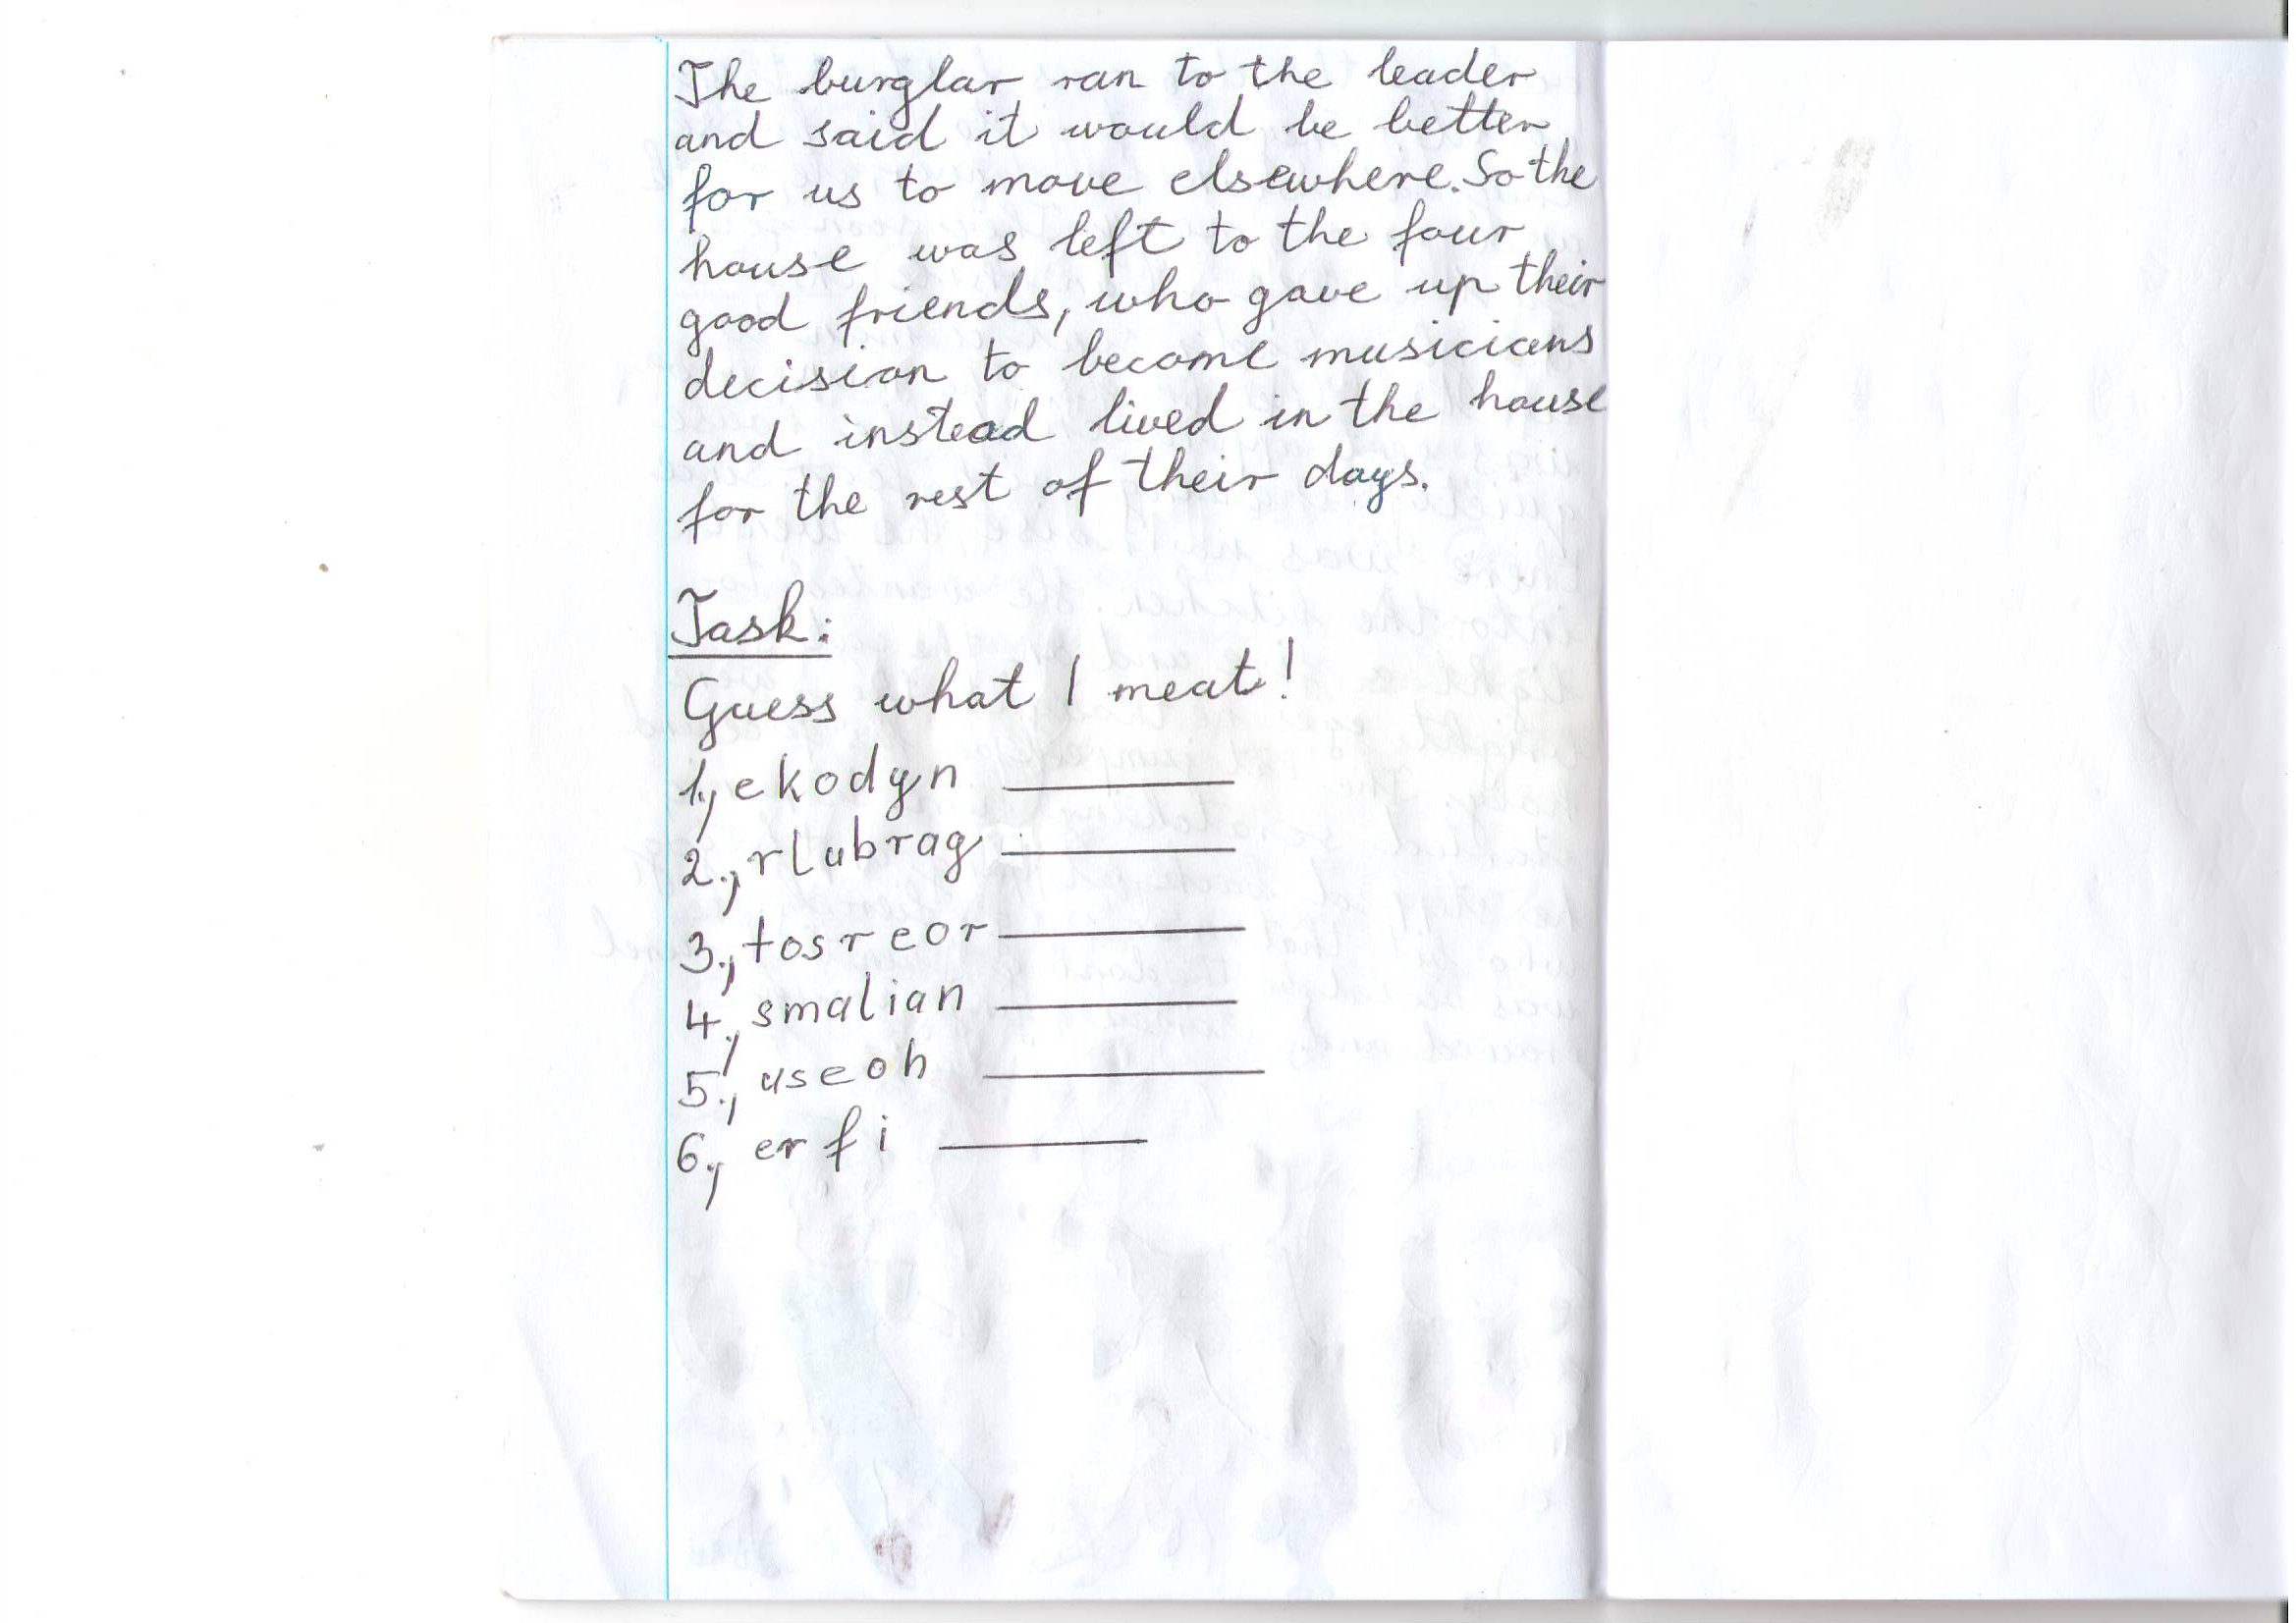 The burglar ran to the leader
and said it would be better
for us to move elsewhere. So the
house was left to the four
good friends, who gave up their
decision to become musicians
and instead lived in the house
for the rest of their days.
Task:
Guess what I meat!
1., ekodyn
2., rlubrag
3., tosreor
4., smalian
5., useoh
6., erfi